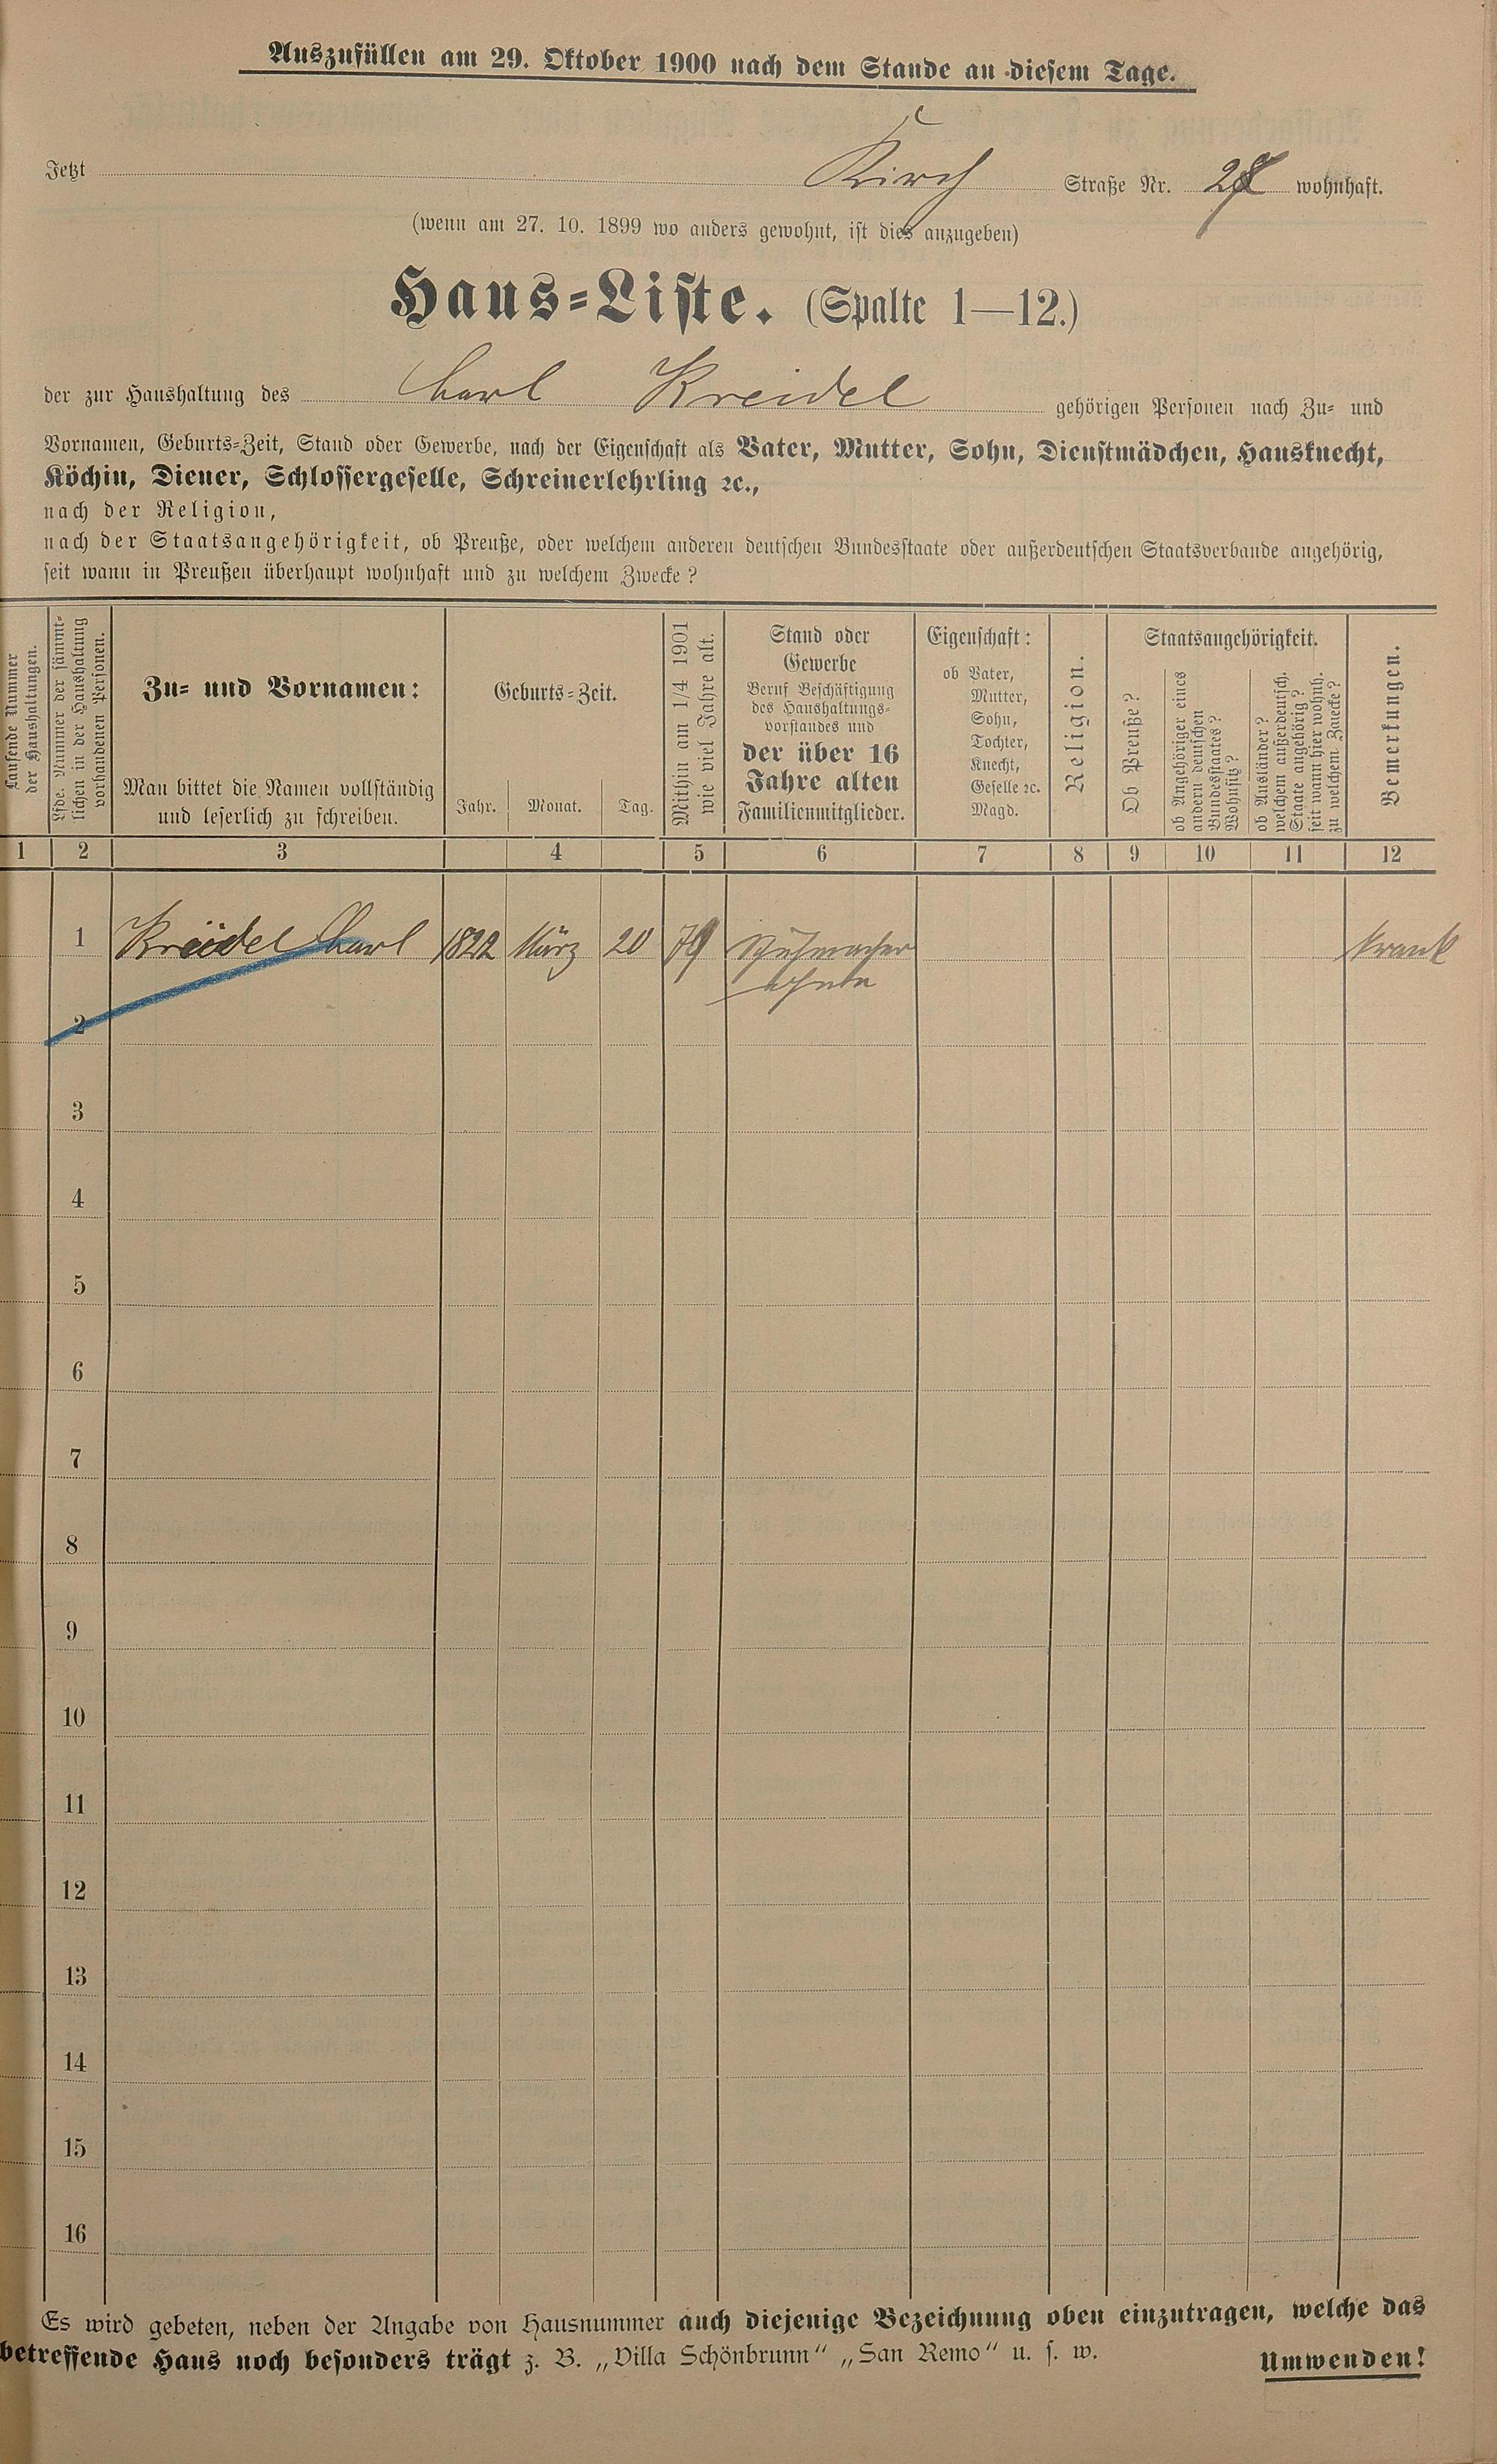 Auszufüllen am 29. Oktober 1900 nach dem Stande an diesem Tage.
Jetzt Kirch Straße Nr. wohnhaft.
(wenn am 27. 10. 1899 wo anders gewohnt, ist dies anzugeben)
Haus=Liste. (Spalte 1—12.)
der zur Haushaltung des Carl Kreidel gehörigen Personen nach Zu= und
Vornamen, Geburts=Zeit, Stand oder Gewerbe, nach der Eigenschaft als Vater, Mutter, Sohn, Dienstmädchen, Hausknecht,
Köchin, Diener, Schlossergeselle, Schreinerlehrling ꝛc.,
nach der Religion,
nach der Staatsangehörigkeit, ob Preuße, oder welchem anderen deutschen Bundesstaate oder außerdeutschen Staatsverbande angehörig,
seit wann in Preußen überhaupt wohnhaft und zu welchem Zwecke?
Laufende Nummer
der Haushaltungen.
Lfde. Nummer der sämmt=
lichen in der Haushaltung
vorhandenen Personen.
Zu= und Vornamen:
Man bittet die Namen vollständig
und leserlich zu schreiben.
Geburts=Zeit.
Jahr. Monat. Tag.
Mithin am 1/4 1901
wie viel Jahre alt.
Stand oder
Gewerbe
Beruf Beschäftigung
des Haushaltungs=
vorstandes und
der über 16
Jahre alten
Familienmitglieder.
Eigenschaft:
ob Vater,
Mutter,
Sohn,
Tochter,
Knecht,
Geselle ꝛc.
Magd.
Religion.
Staatsangehörigkeit.
Ob Preuße?
ob Angehöriger eines
andern deutschen
Bundesstaates?
Wohnsitz?
ob Ausländer?
welchem außerdeutsch.
Staate angehörig?
seit wann hier wohnh.
zu welchem Zwecke?
Bemerkungen.
1 2 3 4 5 6 7 8 9 10 11 12
1 Kreidel Carl 1822 März 20 79 Schuhmacher krank
2
3
4
5
6
7
8
9
10
11
12
13
14
15
16
Es wird gebeten, neben der Angabe von Hausnummer auch diejenige Bezeichnung oben einzutragen, welche das
betreffende Haus noch besonders trägt z. B. „Villa Schönbrunn“ „San Remo“ u. s. w.
Umwenden!